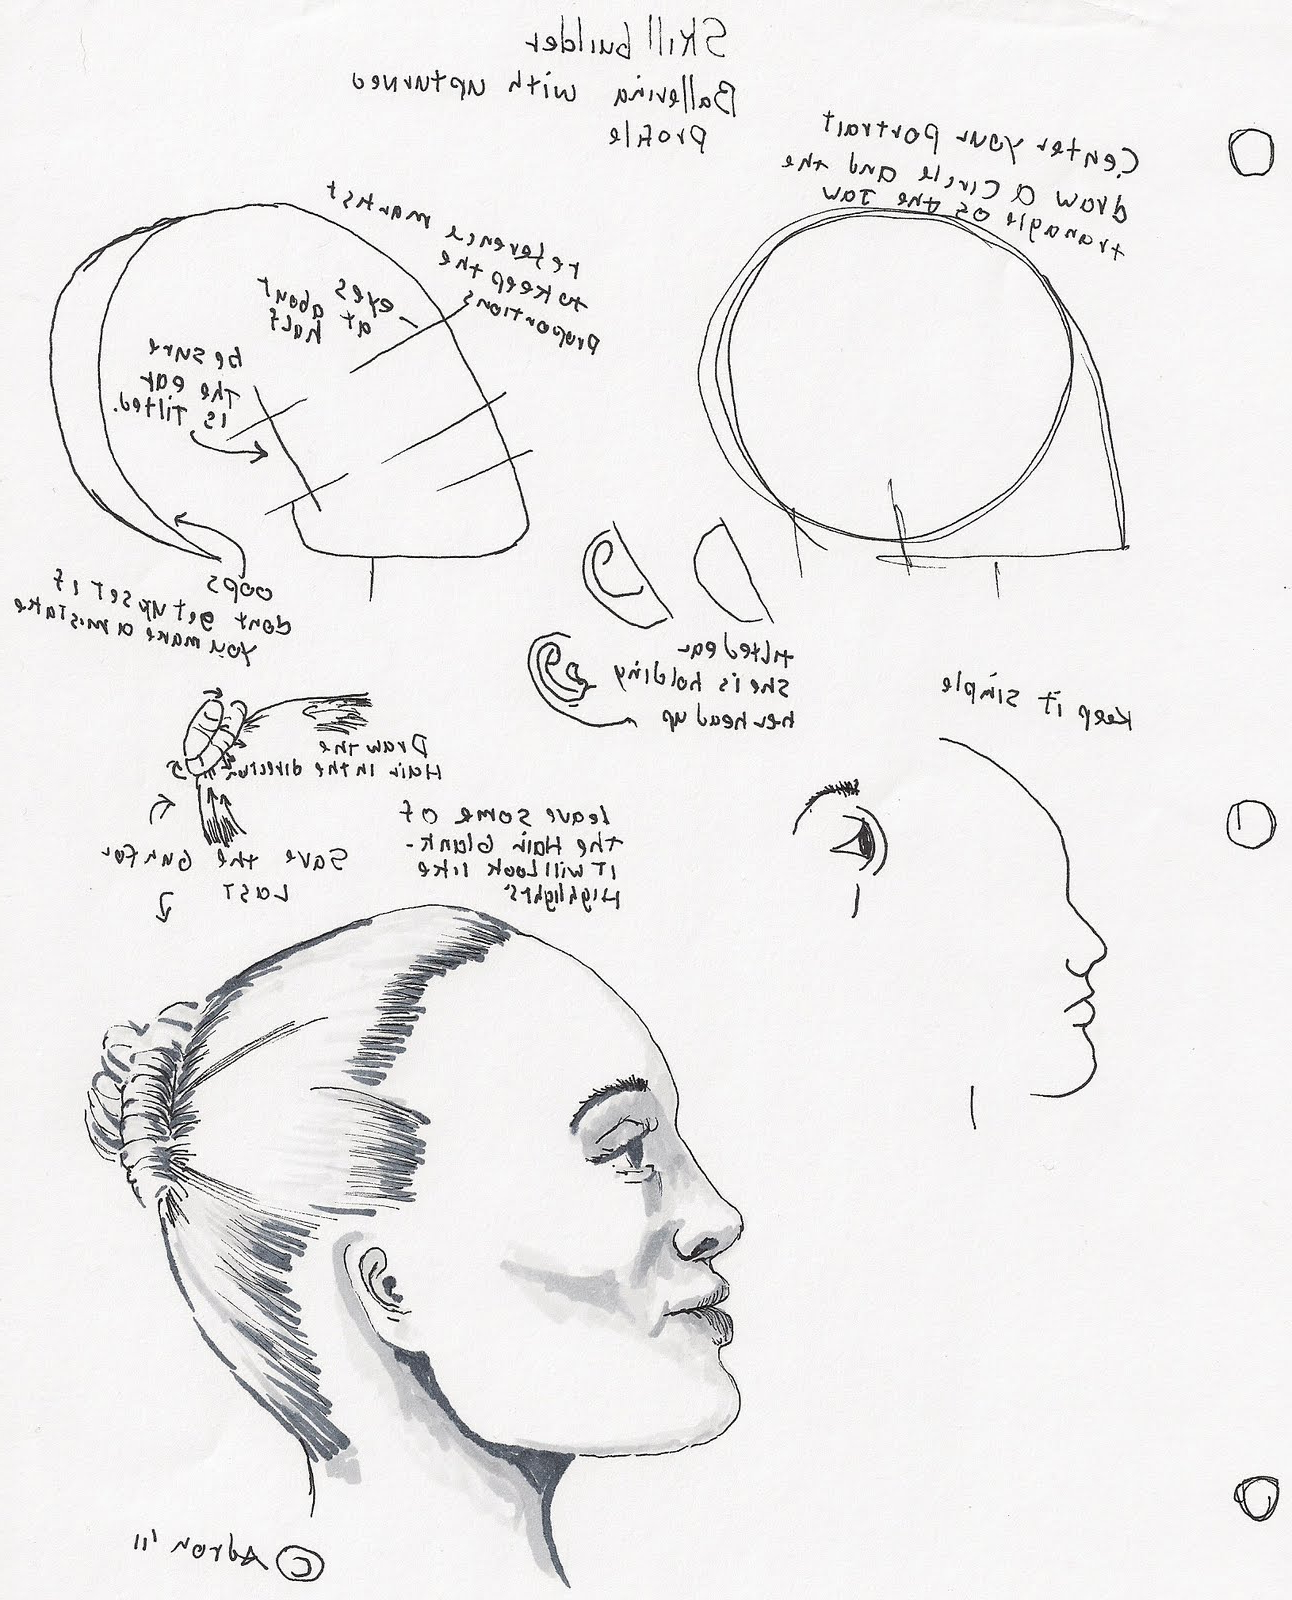 Skill builder
Ballerina with upturned
Profile
Center your portrait
draw a circle and the
tranagle of the Jaw
reference marks!
to keep the
proportions
eyes
at about
half
be sure
the ear
is tilted.
oops
dont get upset if
you make a mistake
tilted ear
she is holding
her head up
Keep it simple
Draw the
Hair in the direction
leave some of
the Hair blank-
it will look like
Highlights
Save the bun for
Last
© Adron '11